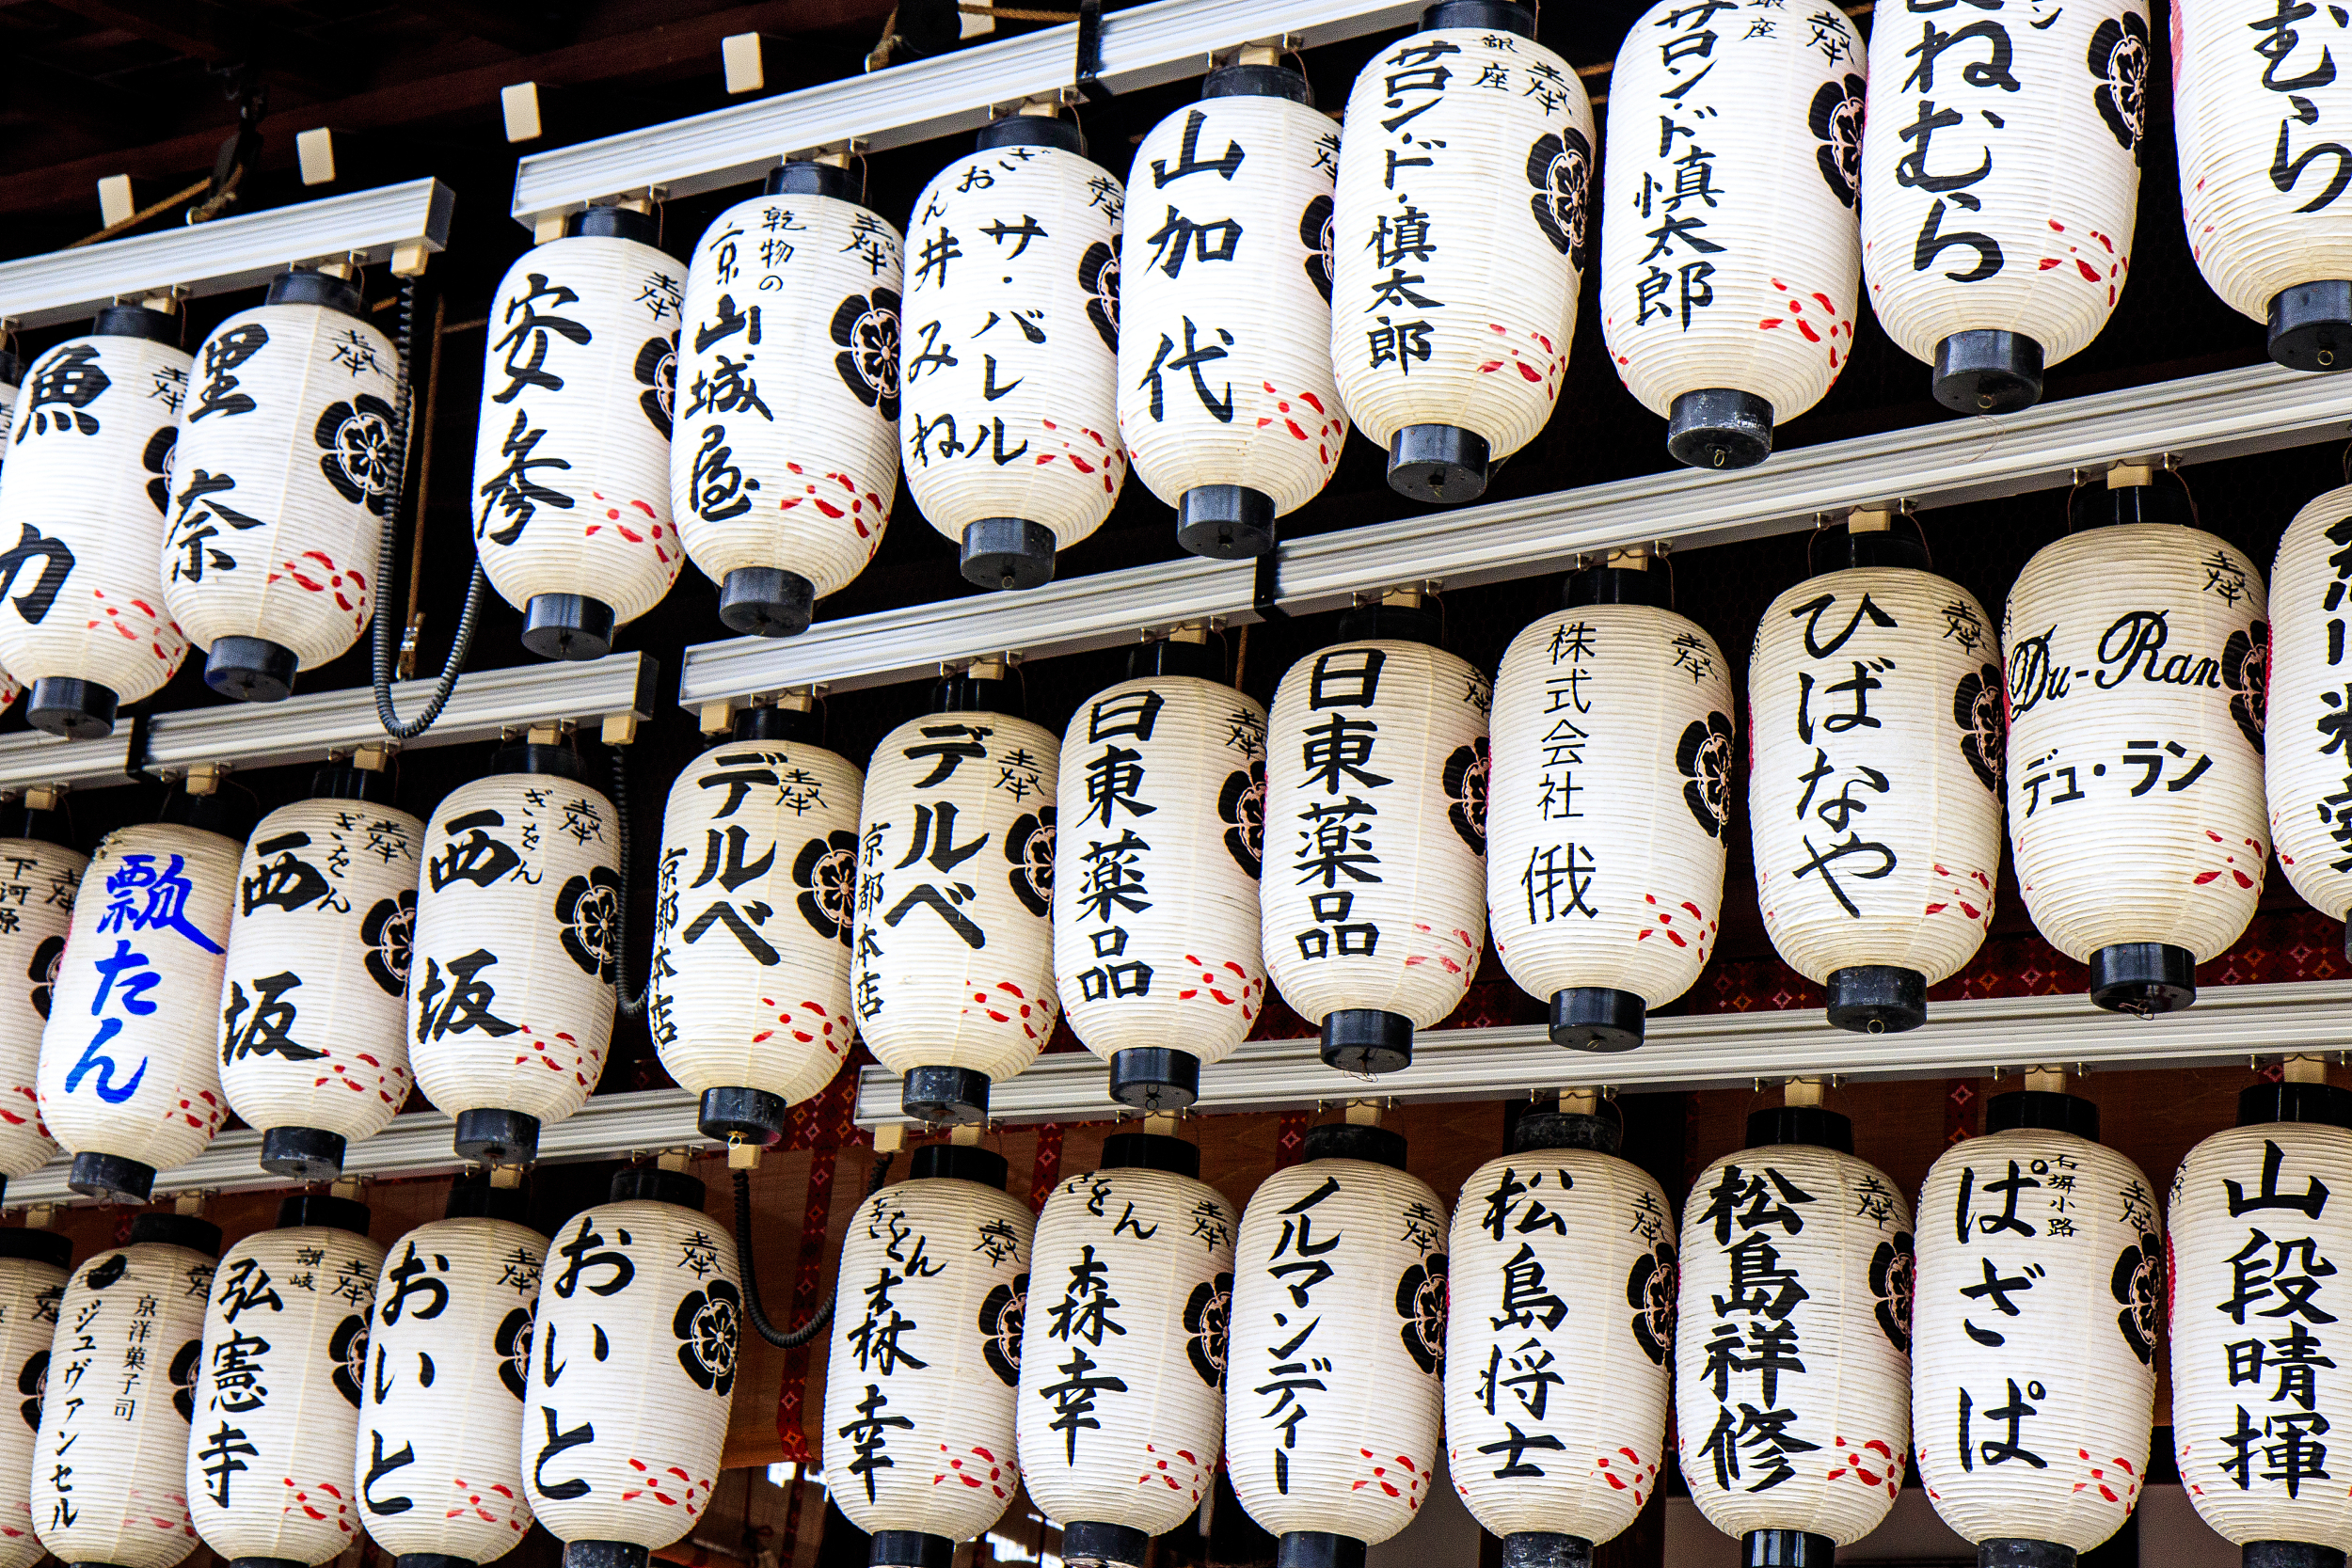 魚力
奉
里奈
奉
安参
奉
乾物の
京山城屋
奉
ぎおん
サ・バレル
井みね
奉
山加代
奉
銀座
サロンド・慎太郎
奉
銀座
サロンド慎太郎
奉
ねむら
むら
下河原
奉
瓢たん
ぎをん
西坂
奉
ぎをん
西坂
奉
デルベ
京都本店
奉
デルベ
京都本店
奉
日東薬品
奉
日東薬品
奉
株式会社
俄
奉
ひばなや
奉
Du-Ran
デュ・ラン
奉
京洋菓子司
ジュヴァンセル
奉
讃岐
弘憲寺
奉
おいと
奉
おいと
奉
ぎをん
森幸
奉
ぎをん
森幸
奉
ノルマンディー
奉
松島将士
奉
松島祥修
奉
石塀小路
ぱざぱ
奉
山段晴揮